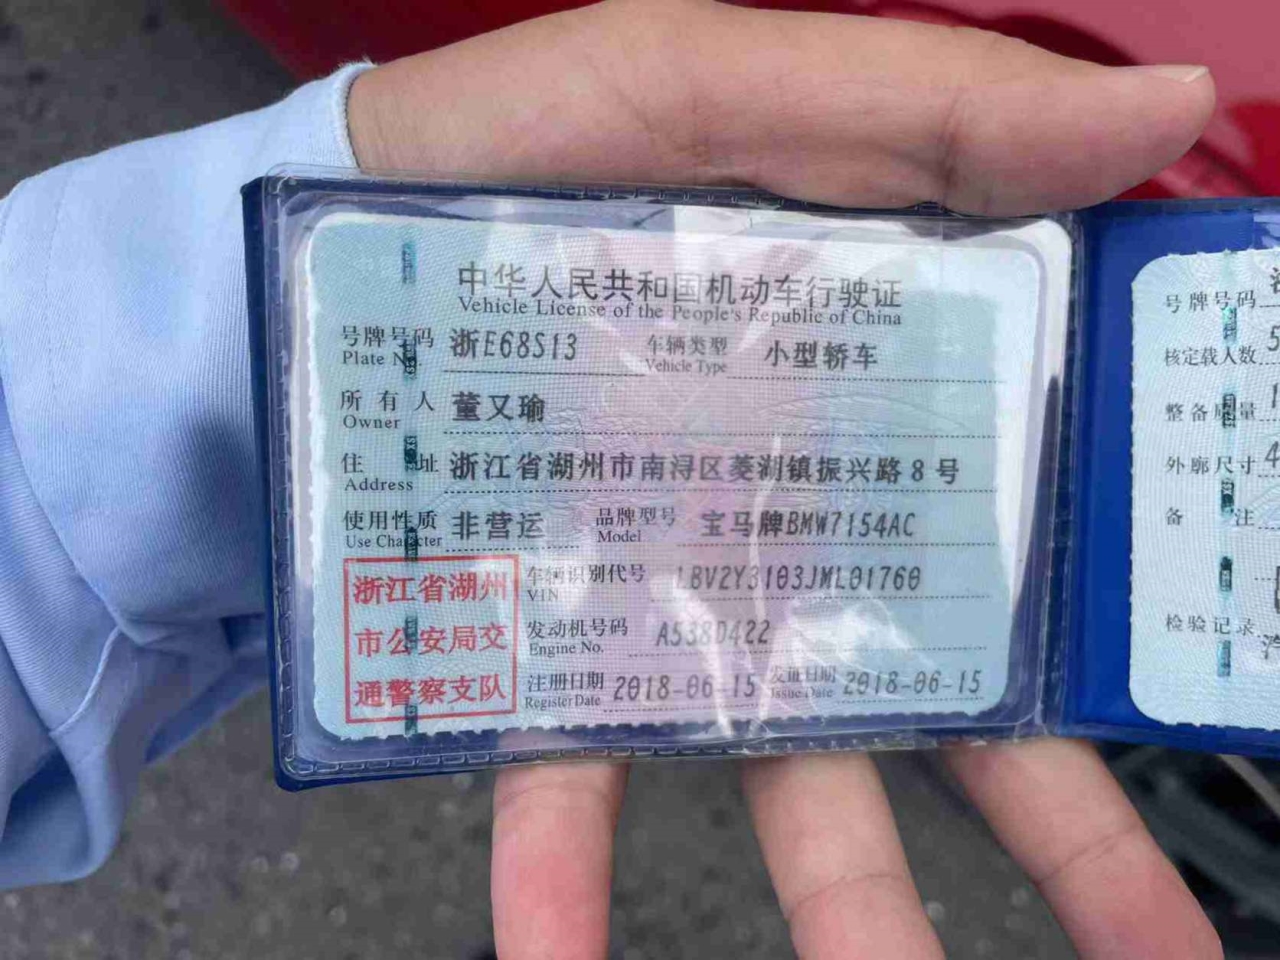 中华人民共和国机动车行驶证
Vehicle License of the People's Republic of China
号牌号码 浙E68S13 车辆类型 小型轿车
Plate N Vehicle Type
所有人 董又瑜
Owner
住址 浙江省湖州市南浔区菱湖镇振兴路8号
Address
使用性质 非营运 品牌型号 宝马牌BMW7154AC
Use Character Model
车辆识别代号 LBV2Y3103JML01760
VIN
发动机号码 A538D422
Engine No.
注册日期 2018-06-15 发证日期 2018-06-15
Register Date Issue Date
浙江省湖州
市公安局交
通警察支队
号牌号码
核定载人数 5
整备质量 1
外廓尺寸 4
备注
检验记录